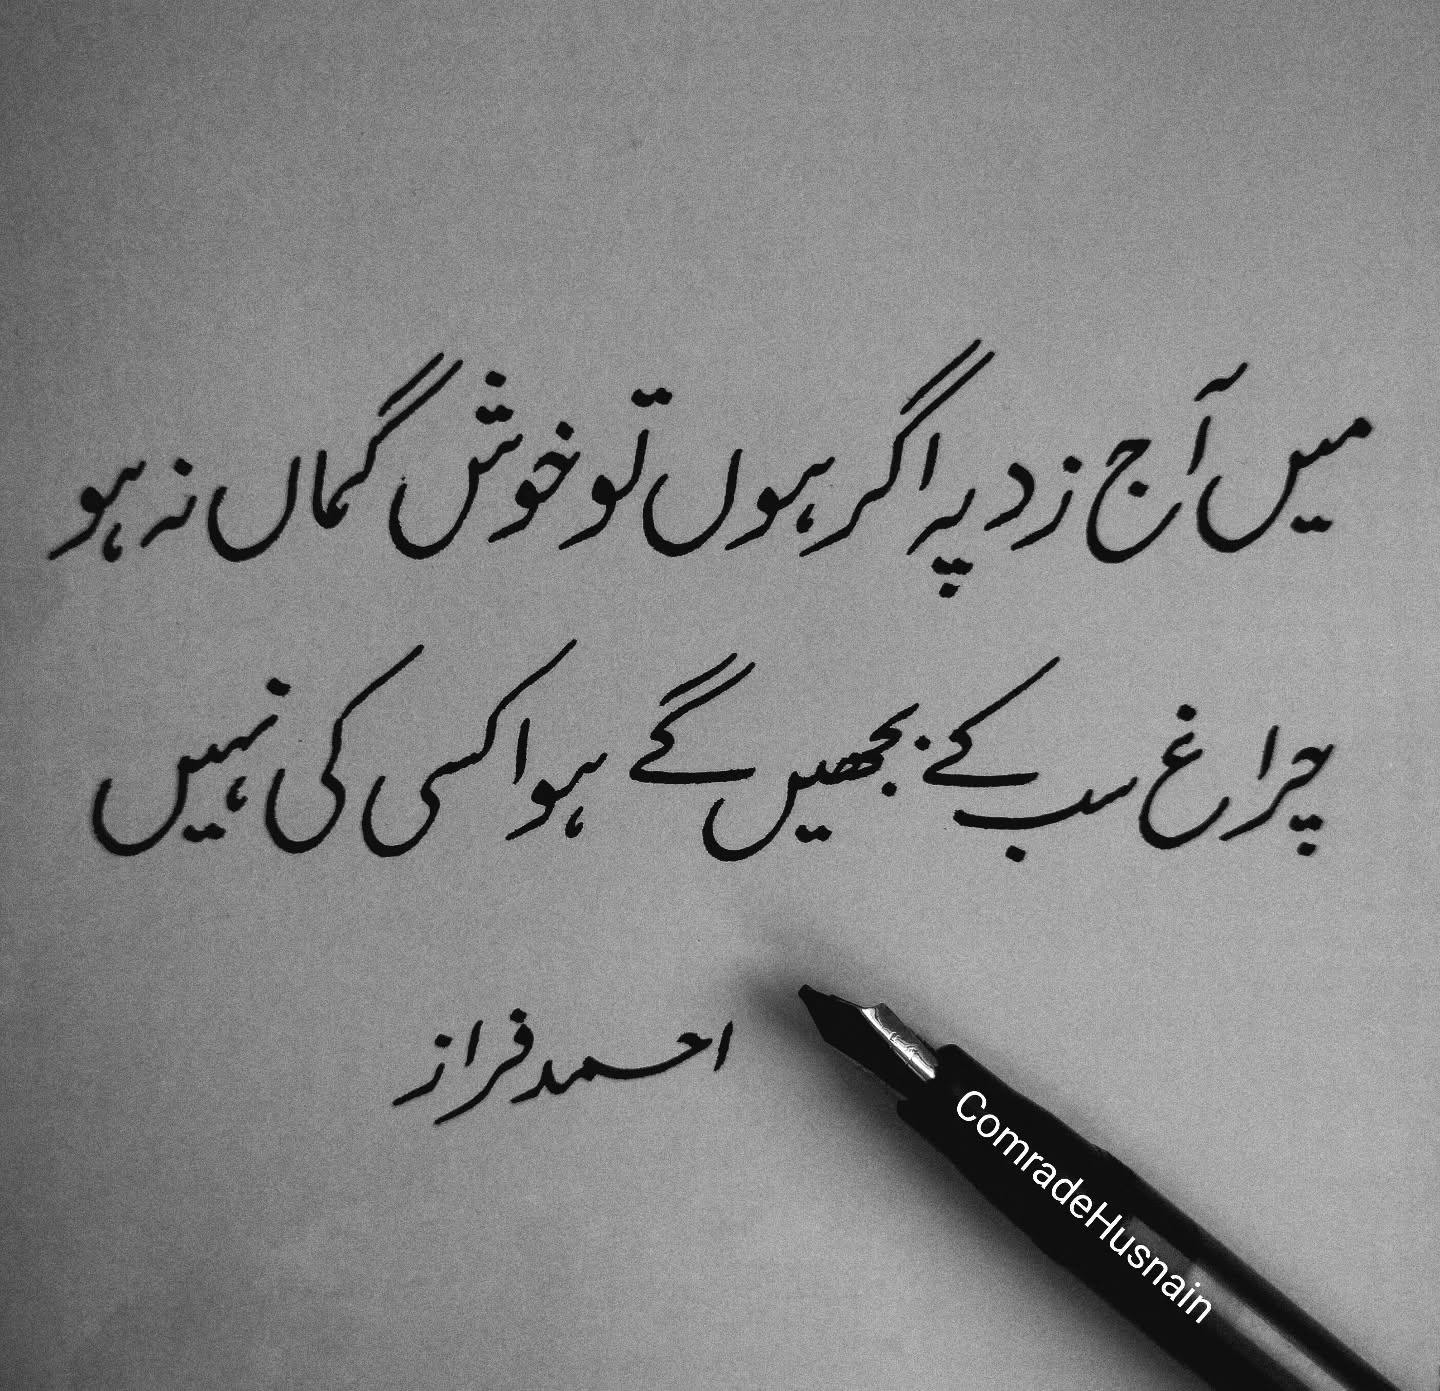 میں آج زد پہ اگر ہوں تو خوش گماں نہ ہو
چراغ سب کے بجھیں گے ہوا کسی کی نہیں
احمد فراز
ComradeHusnain